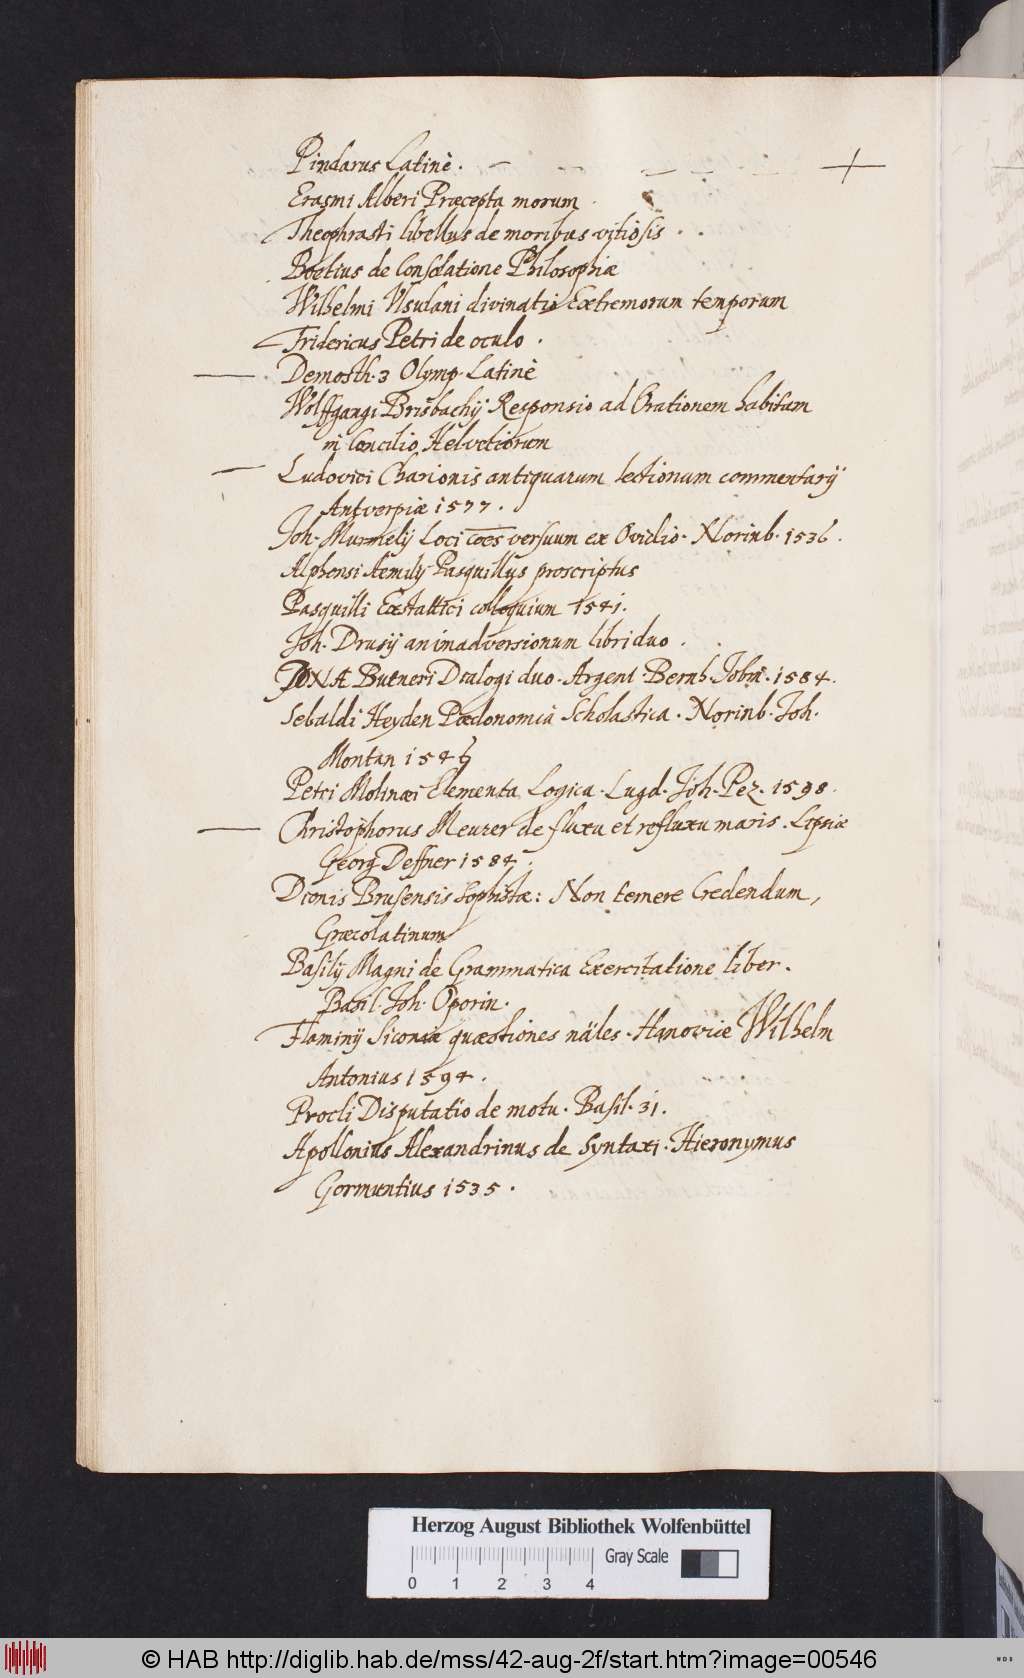 Pindarus Latinè.
Erasmi Alberi Præcepta morum.
Theophrasti libellus de moribus vitiosis.
Boetius de Consolatione Philosophiæ
Wilhelmi Usulani divinatio Extremorum temporum
Fridericus Petri de oculo.
Demosth. 3 Olymp. Latinè
Wolffgangi Brisbachij Responsio ad Orationem habitam
in Concilio Helvetiorum
Ludovici Charionis antiquarum lectionum commentarij
Antverpiæ 1577.
Joh. Murmelij Loci cões versuum ex Ovidio. Norinb. 1536.
Alphonsi Aemilij Pasquillus proscriptus
Pasquilli Exstattici colloquium 1541.
Joh. Drusij animadversionum libri duo.
JONÆ Butneri Dialogi duo. Argent. Bernh. Jobin. 1584.
Sebaldi Heyden Pædonomia Scholastica. Norinb. Joh.
Montan 1546
Petri Molinæi Elementa Logica. Lugd. Joh. Pez. 1598.
Christophorus Meurer de fluxu et refluxu maris. Lipsiæ
Georg Deffner 1584.
Dionis Brusensis Sophistæ: Non temere Credendum,
Græcolatinum
Basilij Magni de Grammatica Exercitatione liber.
Basil. Joh. Oporin.
Flaminij quæstiones näles. Hanoviæ Wilhelm
Antonius 1594.
Procli Disputatio de motu. Basil. 31.
Apollonius Alexandrinus de Syntaxi. Hieronymus
Gormuntius 1535.
Herzog August Bibliothek Wolfenbüttel
Gray Scale
0 1 2 3 4
© HAB http://diglib.hab.de/mss/42-aug-2f/start.htm?image=00546